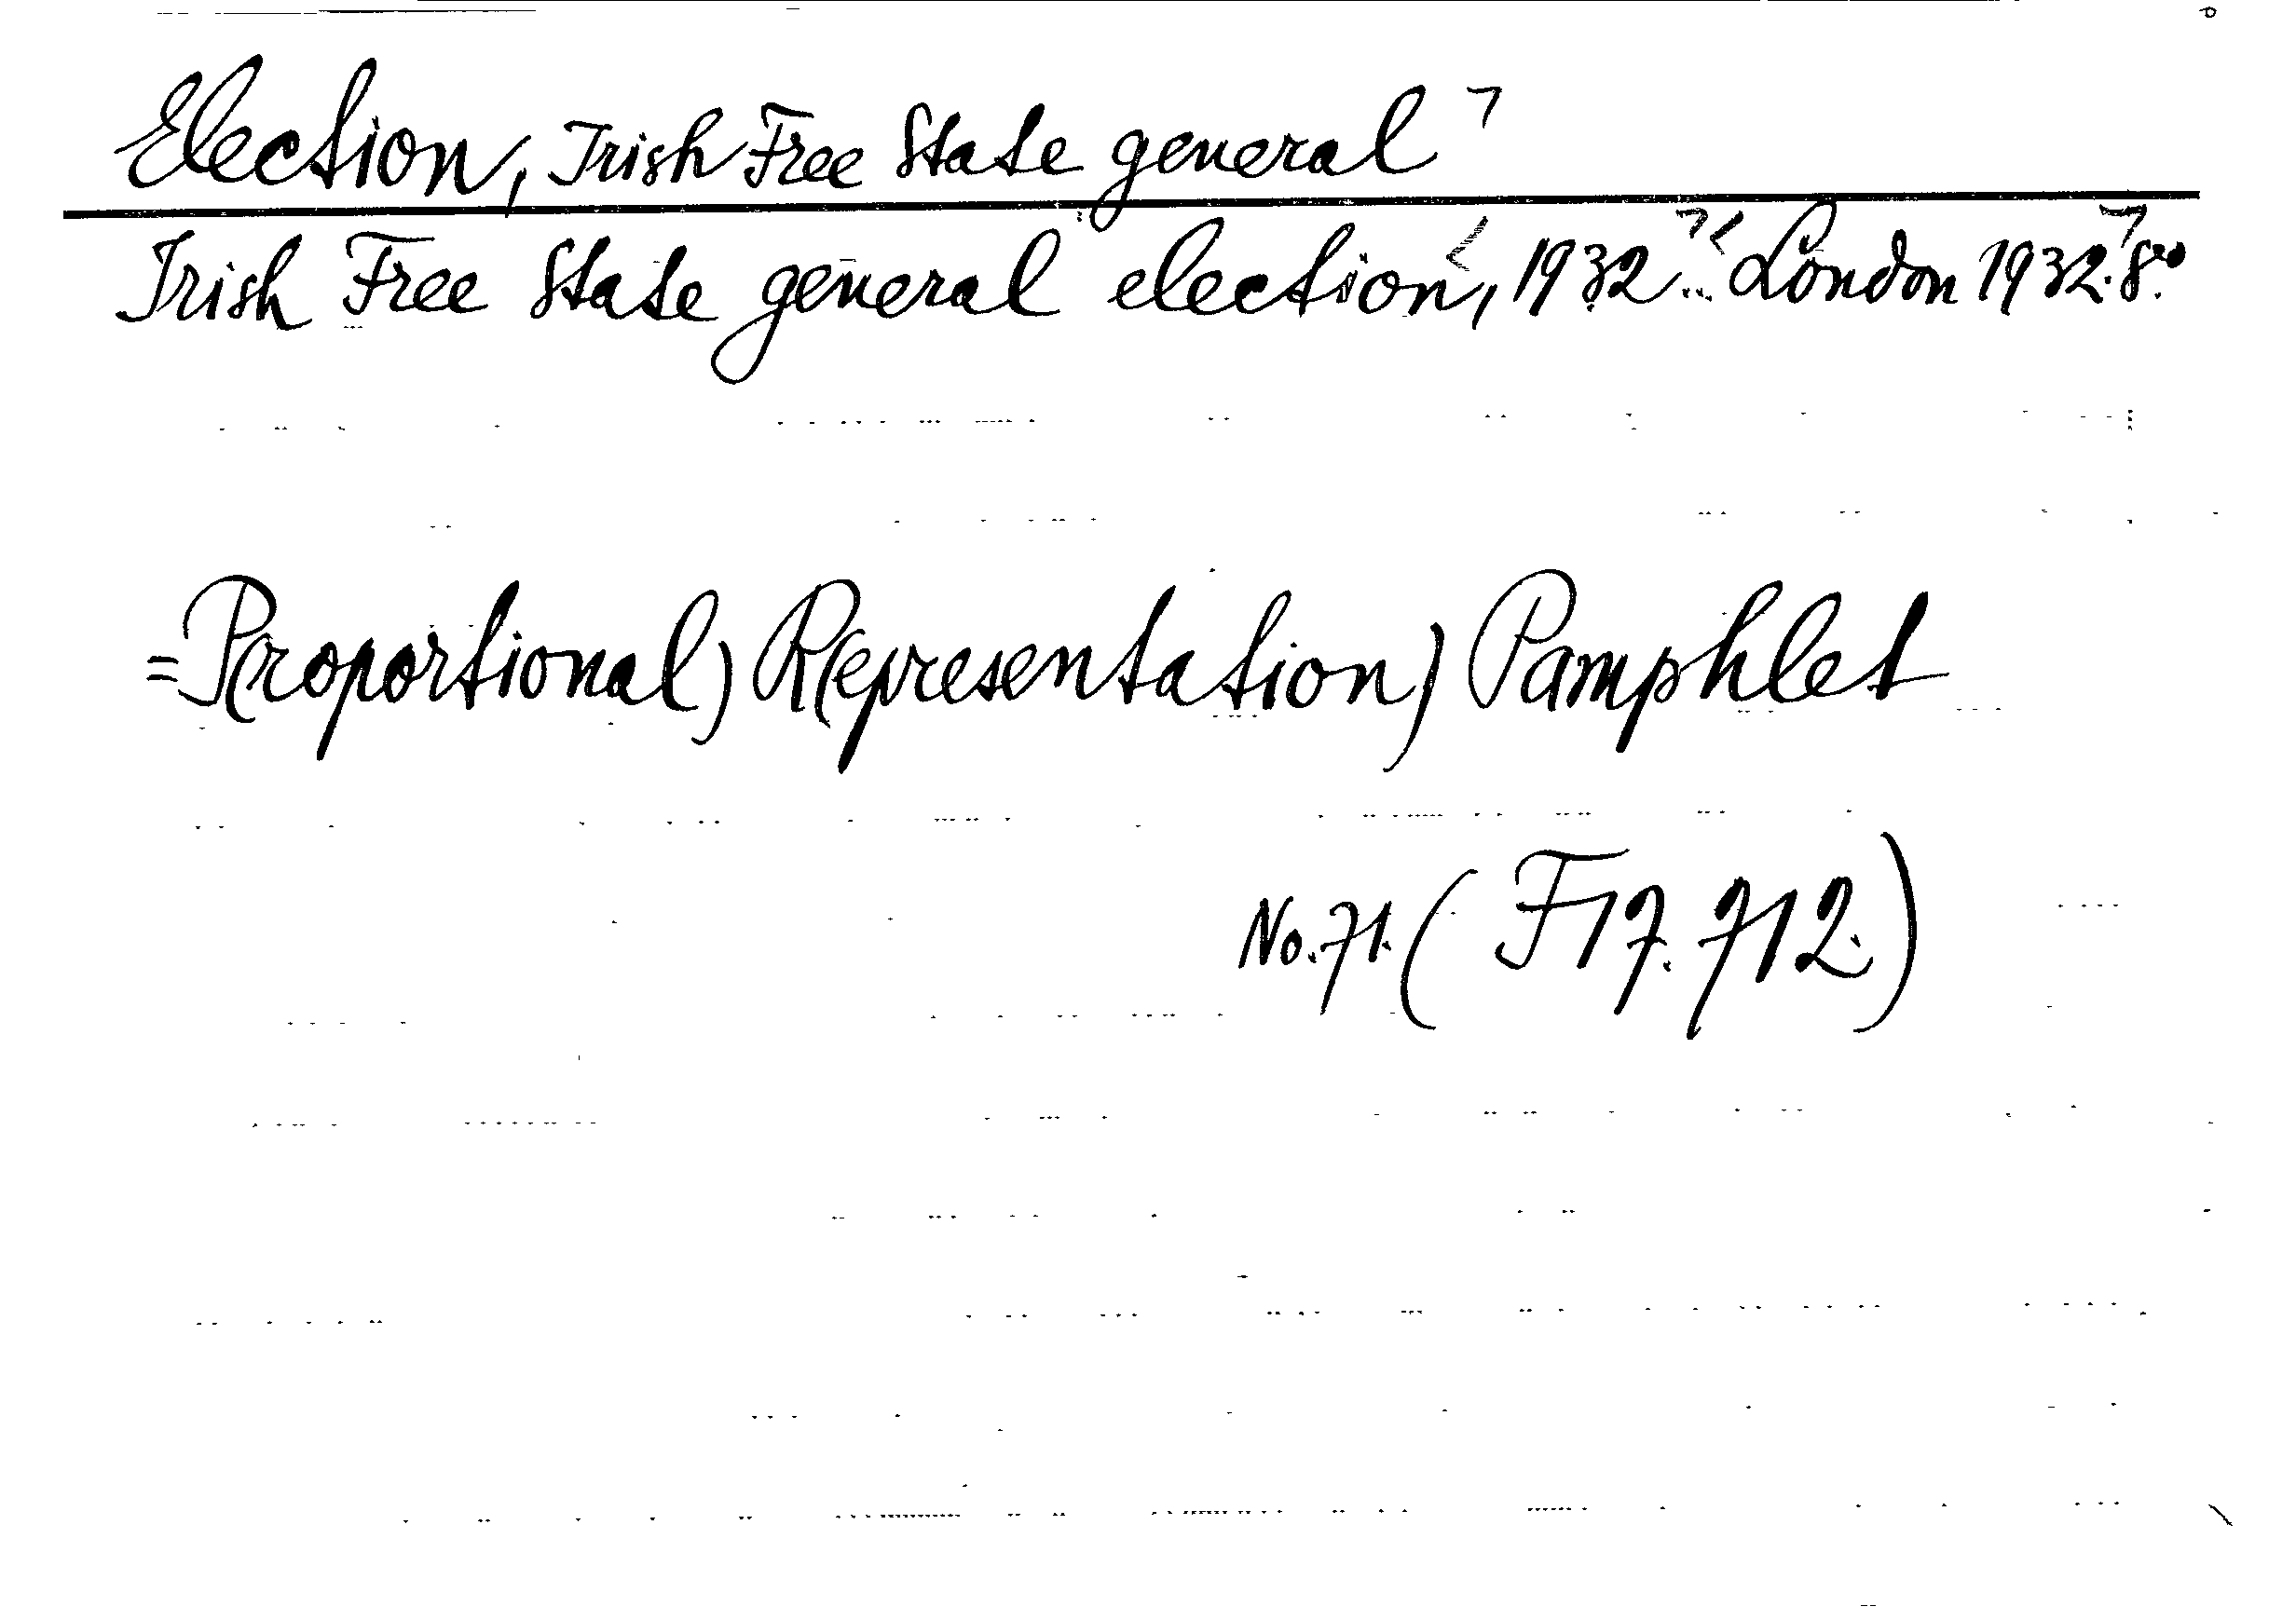 Election, Irish Free State general
Irish Free State general election, 1932. London 1932. 8°.
=P(roportional) R(epresentation) Pamphlet
No. 71. (F 17. 712.)